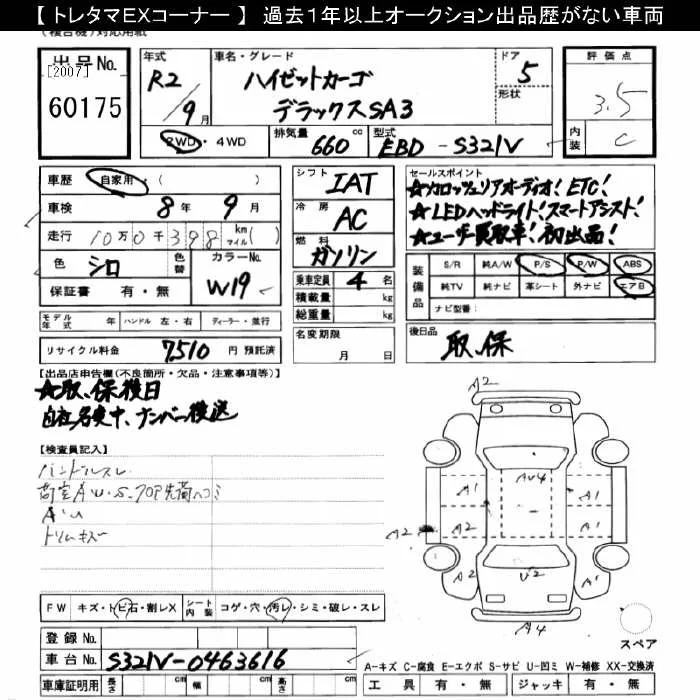 【 トレタマEXコーナー 】 過去１年以上オークション出品歴がない車両
(複合機)対応用紙
出品No.
[2007]
60175
年式
R2
9月
車名・グレード
ハイゼットカーゴ
デラックスSA3
ドア
5
形状
2WD・4WD
排気量
660 cc
型式
EBD-S321V
評価点
3.5
内装
C
車歴
自家用・( )
車検
8年 9月
走行
10万0千398 km マイル( )
色
シロ
色替
カラーNo.
W19
保証書 有・無
モデル年式 年 ハンドル 左・右 ディーラー・並行
リサイクル料金 7510 円 預託済
シフト
IAT
冷房
AC
燃料
ガソリン
乗車定員 4 名
積載量 kg
総重量 kg
名変期限
月 日
セールスポイント
☆カロッツェリアオーディオ! ETC!
☆LEDヘッドライト! スマートアシスト!
☆ユーザー買取車! 初出品!
装備品
S/R 純A/W P/S P/W ABS
純TV 純ナビ 革シート 外ナビ エアB
ナビ型番:
後日品
取、保
【出品店申告欄(不良箇所・欠品・注意事項等)】
☆取、保後日
自社名変中、ナンバー後送
【検査員記入】
ハンドルスレ
荷室A・U・S・フロア先荷ヘコミ
A・U
トリムキズ
A2
AU4
A1
A1
A2
A2
A2
A2
A1
U2
A4
スペア
FW キズ・トビ石・割レX
シート内装 コゲ・穴・汚レ・シミ・破レ・スレ
登録No.
車台No. S321V-0463616
車庫証明用 長さ cm 幅 cm 高さ cm
A-キズ C-腐食 E-エクボ S-サビ U-凹ミ W-補修 XX-交換済
工具 有・無 ジャッキ 有・無